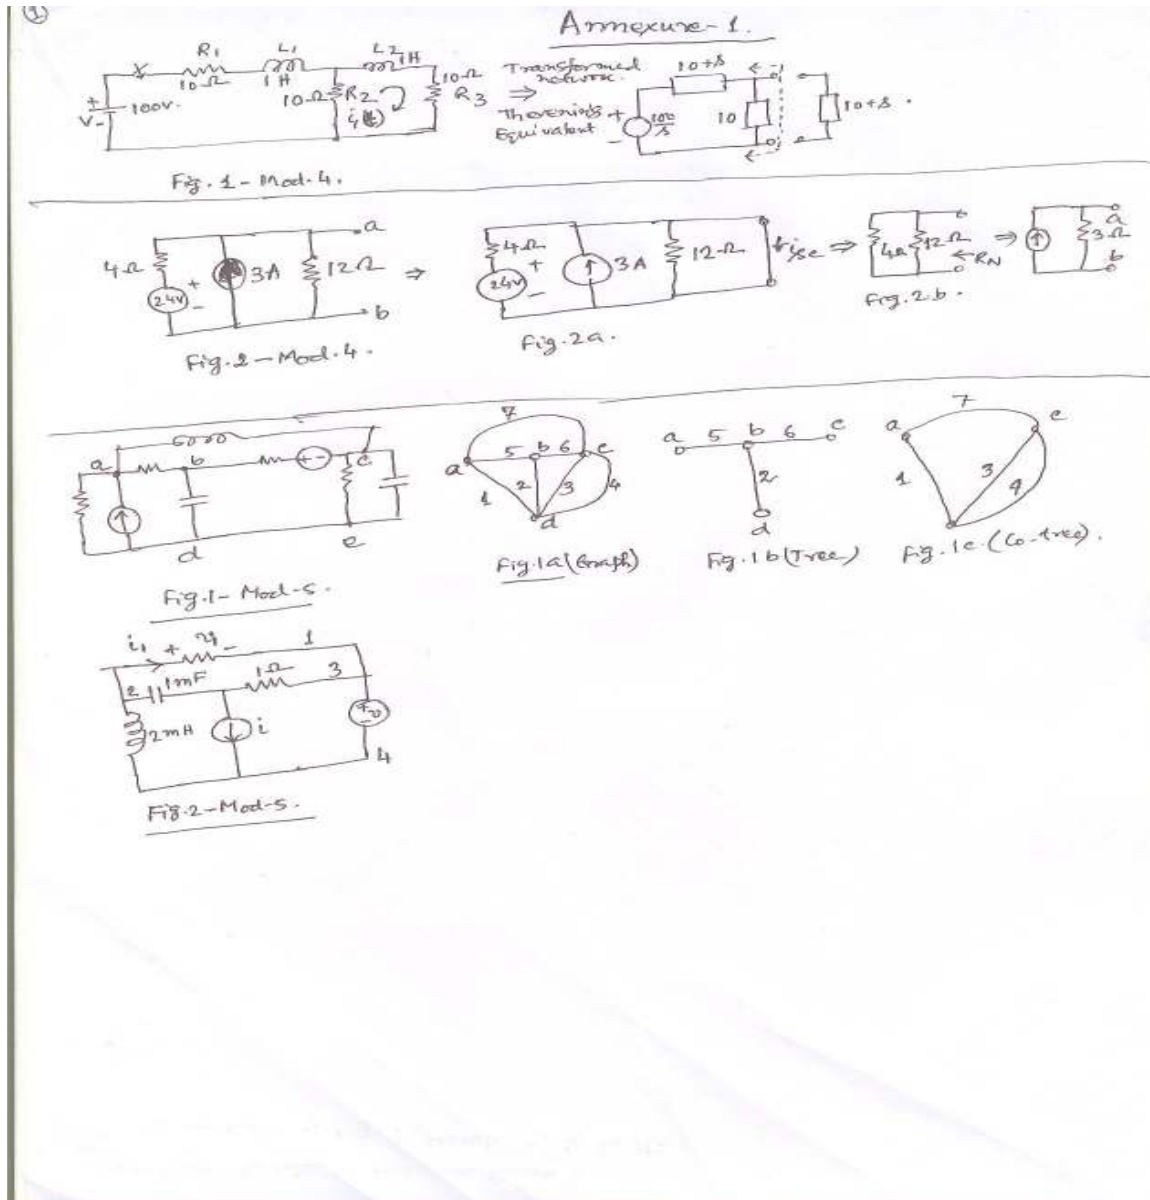 1
Annexure-1.
R1 L1 L2
10Ω 1H 1H
+ V - 100V.
10Ω R2 i(t)
10Ω R3
⇒
Transformed network.
Thevenin's Equivalent
10+s
+ - 100/s 10
10+s.
Fig. 1 - Mod. 4.
4Ω 24V + - 3A 12Ω a b ⇒
Fig. 2 - Mod. 4.
4Ω 24V + - 3A 12Ω isc ⇒
Fig. 2a.
4Ω 12Ω ←RN ⇒
Fig. 2.b.
a 3Ω b
a b c + - d e
Fig.1- Mod-5.
7 5 b 6 c a 1 2 3 4 d
Fig.1a (Graph)
a 5 b 6 c 2 d
Fig.1b (Tree)
7 a c 1 3 4
Fig.1c. (Co-tree).
i1 + v1 - 1
2 1mF 1Ω 3
2mH i + - v
4
Fig.2-Mod-5.